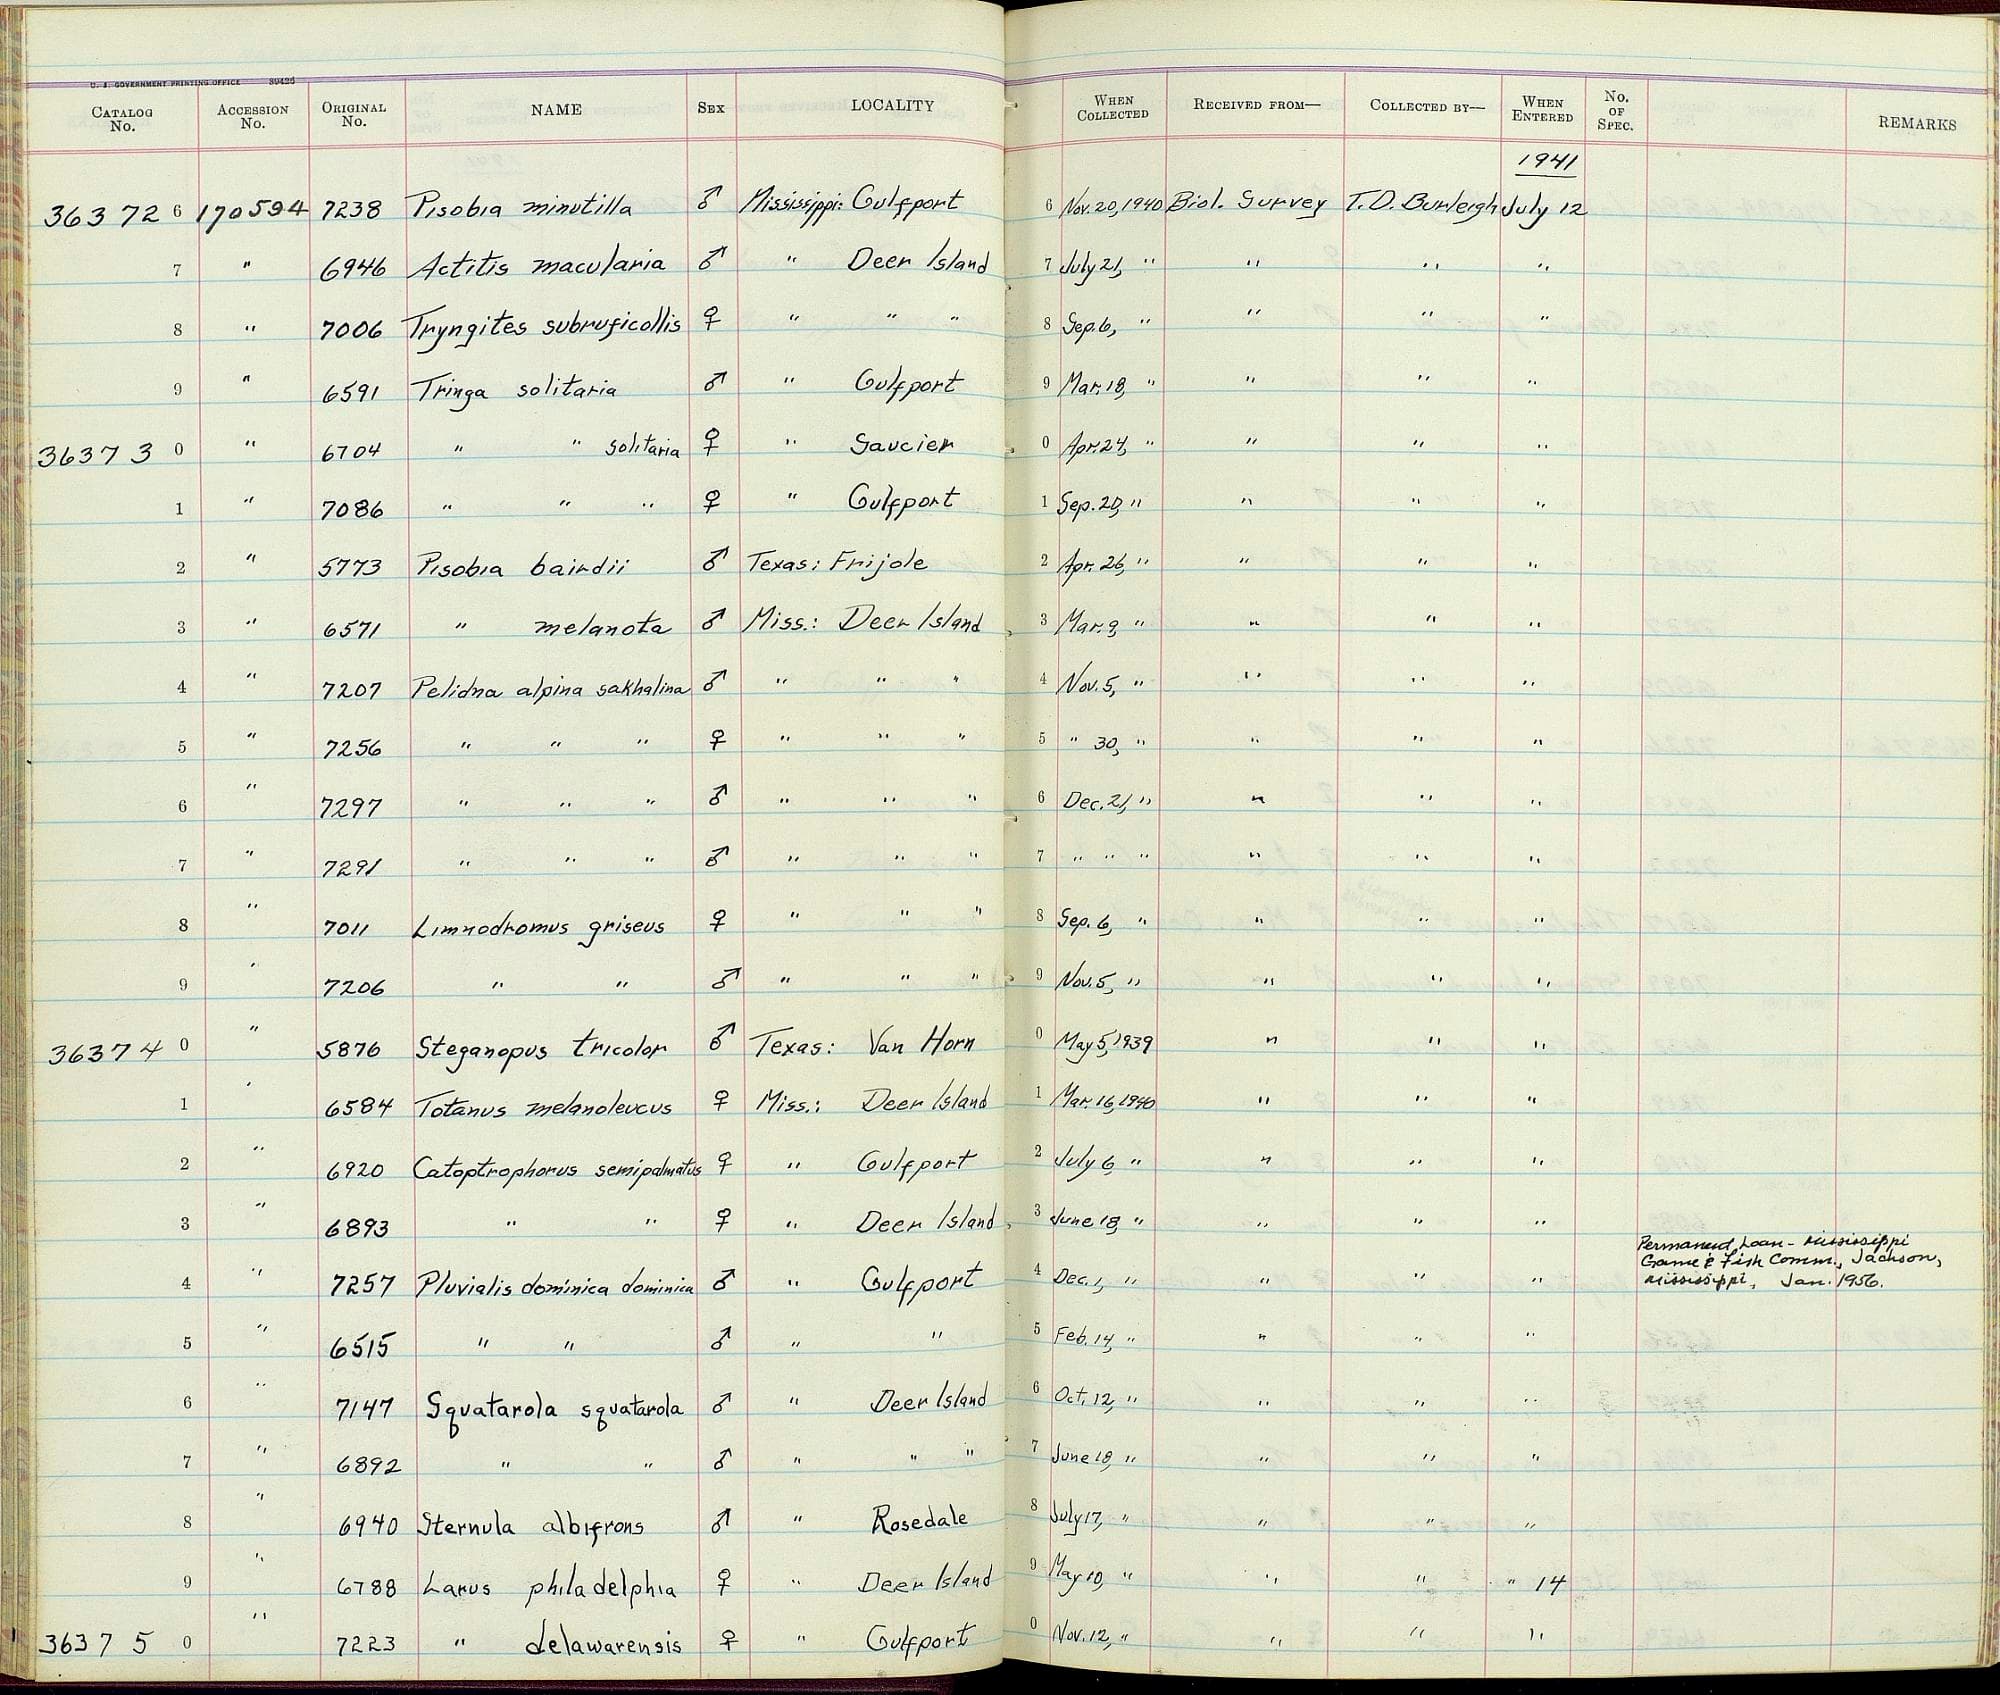 U. S. GOVERNMENT PRINTING OFFICE 39426
CATALOG No. ACCESSION No. ORIGINAL No. NAME SEX LOCALITY WHEN COLLECTED RECEIVED FROM— COLLECTED BY— WHEN ENTERED No. OF SPEC. REMARKS
1941
36372 6 170594 7238 Pisobia minutilla ♂ Mississippi: Gulfport 6 Nov. 20, 1940 Biol. Survey T.D. Burleigh July 12
7 " 6946 Actitis macularia ♂ " Deer Island 7 July 21, " " " "
8 " 7006 Tryngites subruficollis ♀ " " " 8 Sep. 6, " " " "
9 " 6591 Tringa solitaria ♂ " Gulfport 9 Mar. 18, " " " "
36373 0 " 6704 " " solitaria ♀ " Saucier 0 Apr. 24, " " " "
1 " 7086 " " " ♀ " Gulfport 1 Sep. 20, " " " "
2 " 5773 Pisobia bairdii ♂ Texas: Frijole 2 Apr. 26, " " " "
3 " 6571 " melanota ♂ Miss.: Deer Island 3 Mar. 9, " " " "
4 " 7207 Pelidna alpina sakhalina ♂ " " " 4 Nov. 5, " " " "
5 " 7256 " " " ♀ " " " 5 " 30, " " " "
6 " 7297 " " " ♂ " " " 6 Dec. 21, " " " "
7 " 7291 " " " ♂ " " " 7 " " " " " "
8 " 7011 Limnodromus griseus ♀ " " " 8 Sep. 6, " " " "
9 " 7206 " " ♂ " " " 9 Nov. 5, " " " "
36374 0 " 5876 Steganopus tricolor ♂ Texas: Van Horn 0 May 5, 1939 " " "
1 " 6584 Totanus melanoleucus ♀ Miss.: Deer Island 1 Mar. 16, 1940 " " "
2 " 6920 Catoptrophorus semipalmatus ♀ " Gulfport 2 July 6, " " " "
3 " 6893 " " ♀ " Deer Island 3 June 18, " " " "
4 " 7257 Pluvialis dominica dominica ♂ " Gulfport 4 Dec. 1, " " " " Permanent Loan - Mississippi
Game & Fish Comm., Jackson,
Mississippi, Jan. 1956.
5 " 6515 " " ♂ " " 5 Feb. 14, " " " "
6 " 7147 Squatarola squatarola ♂ " Deer Island 6 Oct. 12, " " " "
7 " 6892 " " ♂ " " " 7 June 18, " " " "
8 " 6940 Sternula albifrons ♂ " Rosedale 8 July 17, " " " "
9 " 6788 Larus philadelphia ♀ " Deer Island 9 May 10, " " " " 14
36375 0 " 7223 " delawarensis ♀ " Gulfport 0 Nov. 12, " " " "